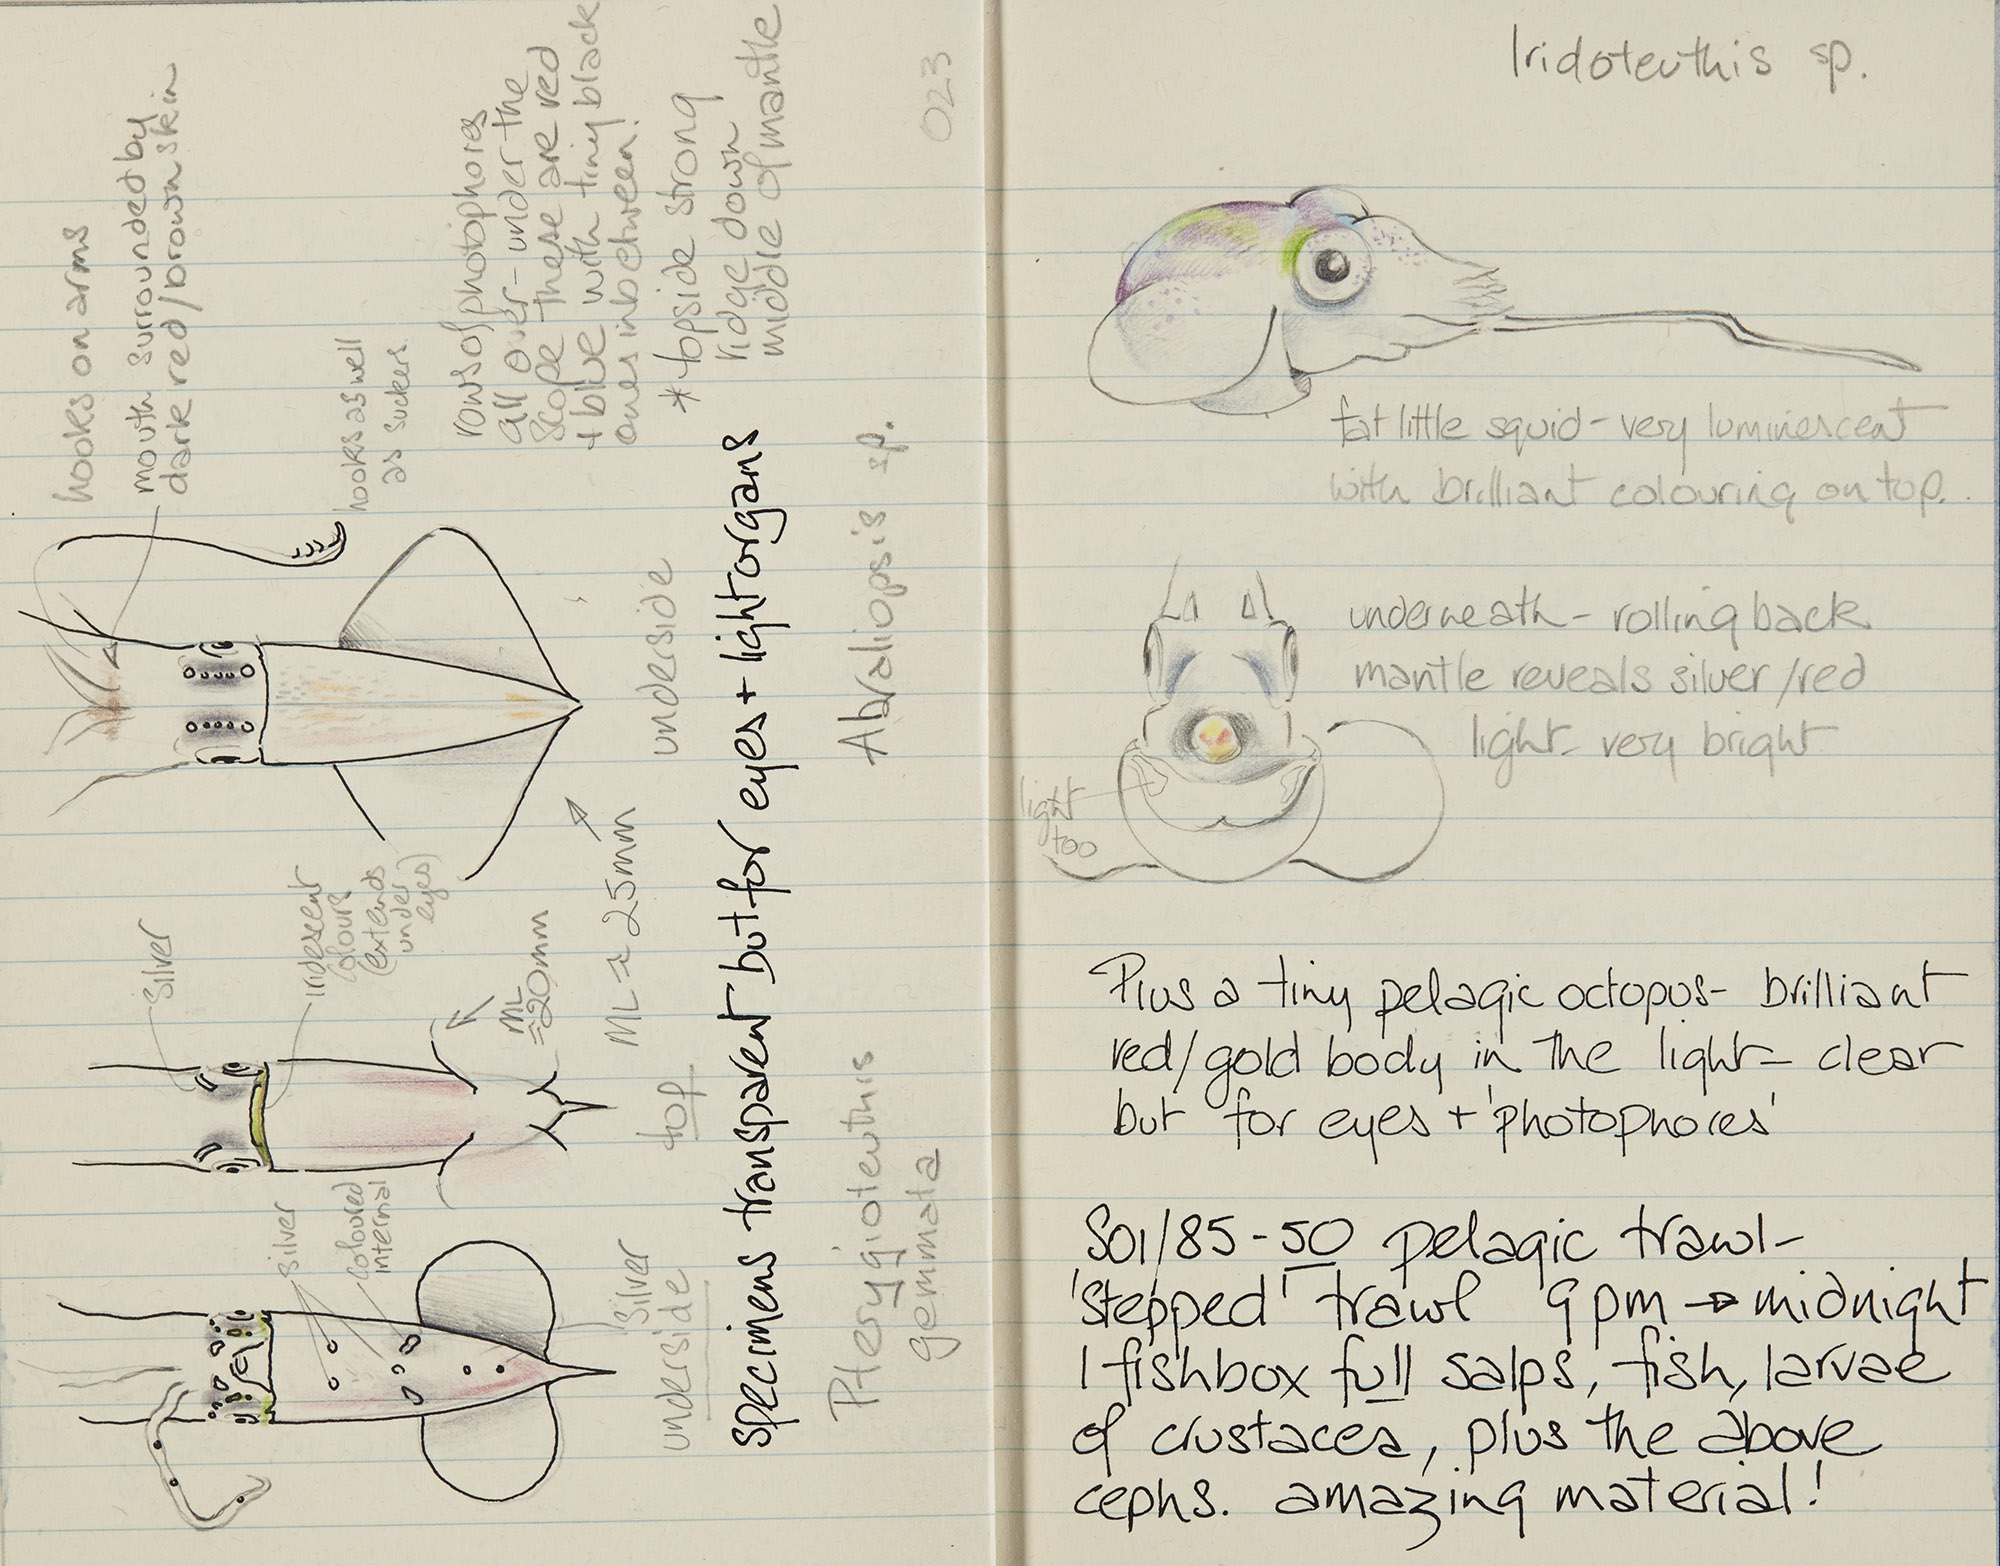 hooks on arms
mouth surrounded by
dark red/brown skin
hooks as well
as suckers.
rows of photophores
all over - under the
scope these are red
+ blue with tiny black
ones inbetween!
* topside strong
ridge down
middle of mantle
023
silver
iridescent
colours
(extends
under
eyes)
ML
≈20mm
ML ≈ 25mm
underside
top
silver
coloured
internal
silver
underside
Specimens transparent but for eyes + light organs
Pterygioteuthis
gemmata
Abraliopsis sp.
Iridoteuthis sp.
fat little squid - very luminescent
with brilliant colouring on top.
underneath - rolling back
mantle reveals silver/red
light - very bright
light
too
Plus a tiny pelagic octopus - brilliant
red/gold body in the light - clear
but for eyes + 'photophores'
S01/85-50 pelagic trawl -
'stepped' trawl 9pm → midnight
1 fishbox full salps, fish, larvae
of crustacea, plus the above
cephs. amazing material!